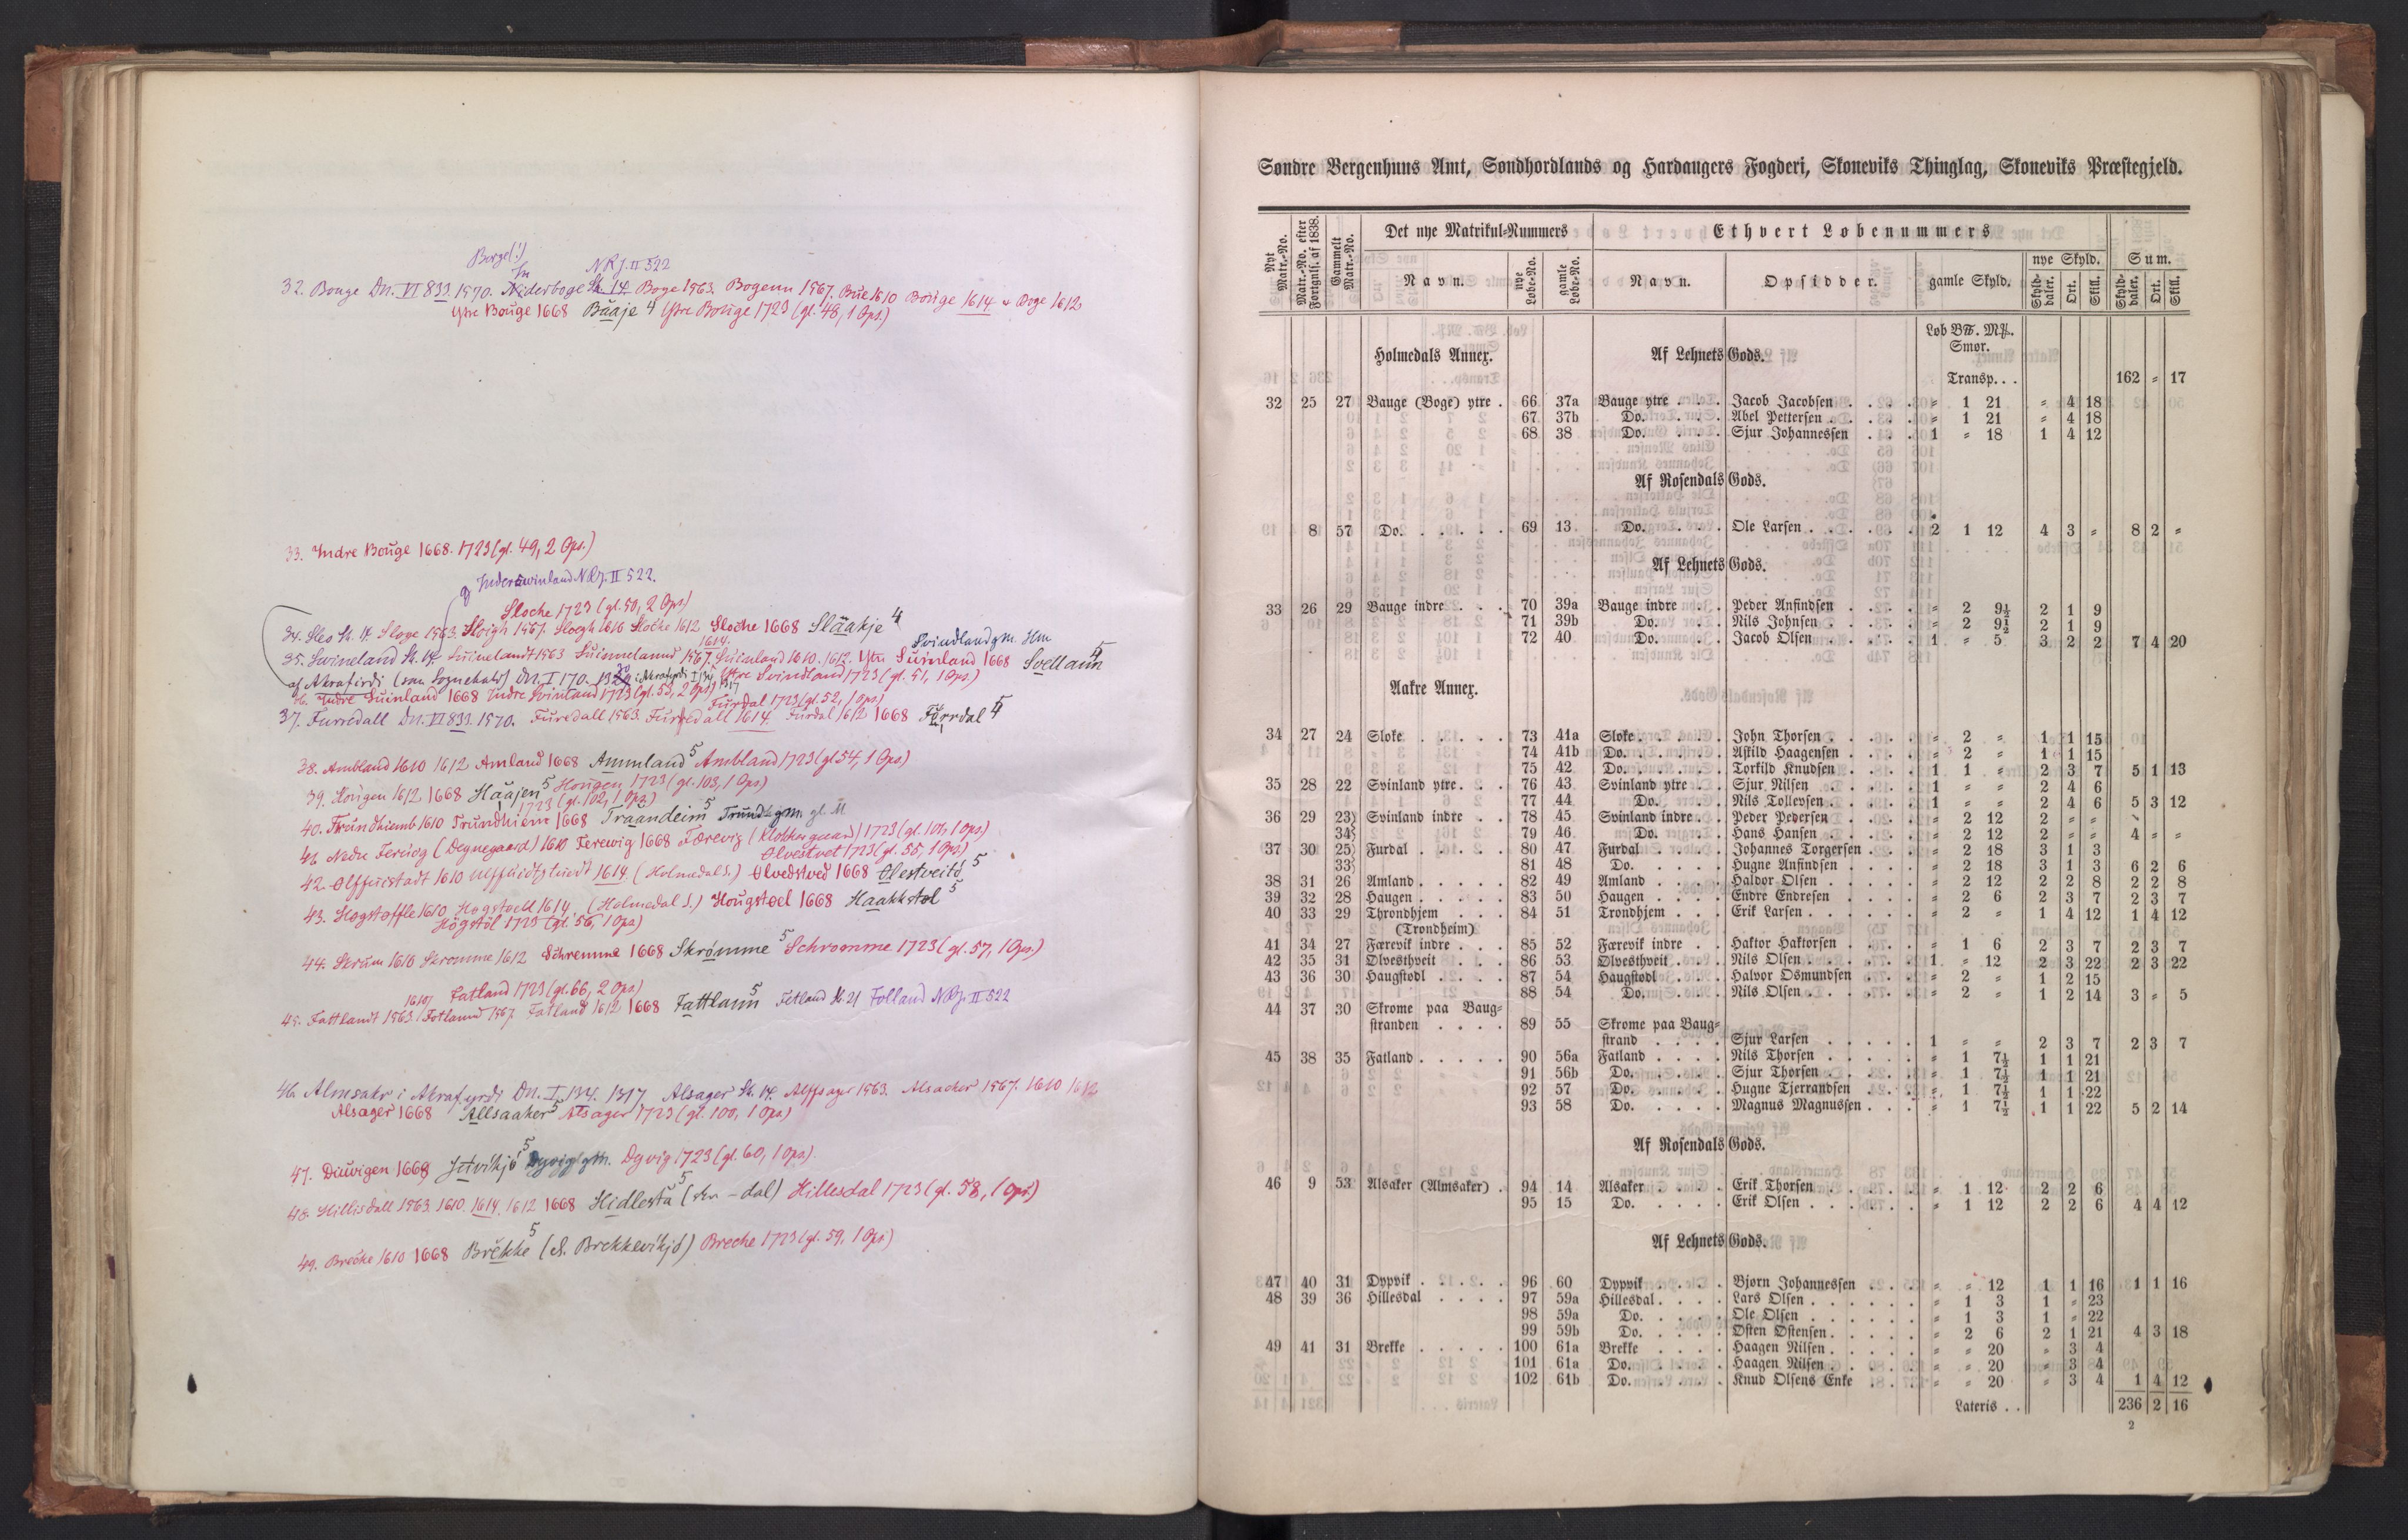 Borge(!)
In NRJ. II 522
32. Bouge Dn. VI 833 1570. Niderboge St. 14. Boge 1563. Bogenn 1567. Bue 1610 Bouge 1614. Boge 1612
Ytre Bouge 1668 Bååje 4 Ytre Bouge 1723 (gl. 48, 1 Ops.)
33. Indre Bouge 1668. 1723 (gl. 49, 2 Ops.)
Inderswinland NRJ. II 522.
Sloche 1723 (gl. 50, 2 Ops)
34. Sleo St. 14. Sloge 1563. Sloigh 1567. Sloegh 1610 Slocke 1612 Sloche 1668 Slåakje 4
1614. Svindland gm. Hm
35. Swineland St. 14. Suinelandt 1563 Suinnelannd 1567. Suinland 1610. 1612. Ytre Suinland 1668 Svellann 4
af Akrafirdi (van Sognehatr) Dn. I 170. 1329 i Akrafyrdi I 134 1317 Ytre Svindland 1723 (gl. 51, 1 Ops.)
36. Indre Suinland 1668 Indre Svinland 1723 (gl. 53, 2 Ops)
Furdal 1723 (gl. 52, 1 Ops.)
37. Furredall Dn. VI 833. 1570. Furedall 1563. Furredall 1614. Furdal 1612 1668 Førrdal 4
38. Ambland 1610 1612 Amland 1668 Ammland 5 Ambland 1723 (gl 54, 1 Ops.)
39. Hougen 1612 1668 Håajen 5 Hougen 1723 (gl. 103, 1 Ops)
1723 (gl. 102, 1 Ops.)
40. Trundhiemb 1610 Trundhiem 1668 Traandeim 5 Trundh. gm. gl. M
41. Nedre Ferwog (Degnegaard) 1610 Ferewig 1668 Færevig (Klokkergaard) 1723 (gl. 101, 1 Ops.)
Olvestvet 1723 (gl. 55, 1 Ops.)
42. Olffuistadt 1610 Ulffuidtztuedt 1614. (Holmedal S.) Olvedstved 1668 Ølestveitd 5
43. Hogstoffle 1610 Hogstoell 1614. (Holmedal S.) Hougstoel 1668 Haakkstøl 5
Högstöl 1723 (gl. 56, 1 Ops)
44. Skrum 1610 Skromme 1612 Schremme 1668 Skrømme 5 Schromme 1723 (gl. 57, 1 Ops.)
1610. Fatland 1723 (gl. 66, 2 Ops)
45. Fattlandt 1563. Fotlannd 1567. Fatland 1612 1668 Fattlann 5 Fetland St. 21 Folland NRJ. II 522
46. Almsakr i Akrafyrdi Dn. I 134. 1317 Alsager St. 14. Alffsager 1563. Alsacker 1567. 1610 1612
Alsager 1668 Allsaaker 5 Alsager 1723 (gl. 100, 1 Ops.)
47. Diuvigen 1668 Jvikjo 5 Dyvig gm. Dyvig 1723 (gl. 60, 1 Ops.)
48. Hillisdall 1563. 1610. 1614. 1612 1668 Hidlesta 5 (skr -dal) Hillesdal 1723 (gl. 58, 1 Ops.)
49. Brecke 1610 1668 Brekke 5 (el. Brekkevikjo) Breche 1723 (gl. 59, 1 Ops.)
Søndre Bergenhuus Amt, Søndhordlands og Hardangers Fogderi, Skoneviks Thinglag, Skoneviks Præstegjeld.
Nyt Matr.-No. Matr.-No. efter Førtgnls. af 1838. Gammelt Matr.-No. Det nye Matrikul-Nummers Ethvert Løbenummers
Navn. nye Løbe-No. gamle Løbe-No. Navn. Opsidder. gamle Skyld. nye Skyld. Sum.
Skyld-daler. Ort. Skill. Skyld-daler. Ort. Skill.
Løb B℔. M℔.
Holmedals Annex. Af Lehnets Gods. Smør.
Transp. . . 162 = 17
32 25 27 Bauge (Boge) ytre . 66 37a Bauge ytre . . . Jacob Jacobsen . . . . = 1 21 = 4 18
67 37b Do. . . . Abel Pettersen . . . . = 1 21 = 4 18
68 38 Do. . . . Sjur Johannessen . . . 1 = 18 1 4 12
Af Rosendals Gods.
8 57 Do. . . . . . 69 13 Do. . . . Ole Larsen . . . . . 2 1 12 4 3 = 8 2 =
Af Lehnets Gods.
33 26 29 Bauge indre . . . 70 39a Bauge indre . . Peder Anfindsen . . . . = 2 9½ 2 1 9
71 39b Do. . . . Nils Johnsen . . . . = 2 9½ 2 1 9
72 40 Do. . . . Jacob Olsen . . . . . 1 = 5 3 2 2 7 4 20
Aakre Annex.
34 27 24 Sloke . . . . . 73 41a Sloke . . . . John Thorsen . . . . = 2 = 1 1 15
74 41b Do. . . . Askild Haagensen . . . = 2 = 1 1 15
75 42 Do. . . . Torkild Knudsen . . . 1 1 = 2 3 7 5 1 13
35 28 22 Svinland ytre . . . 76 43 Svinland ytre . . Sjur Nilsen . . . . . 1 = = 2 4 6
77 44 Do. . . . Nils Tollevsen . . . . 1 = = 2 4 6 5 3 12
36 29 23 Svinland indre . . 78 45 Svinland indre . . Peder Pedersen . . . . = 2 12 2 = =
34 79 46 Do. . . . Hans Hansen . . . . = 2 12 2 = = 4 = =
37 30 25 Furdal . . . . . 80 47 Furdal . . . . Johannes Torgersen . . . = 2 18 3 1 3
33 81 48 Do. . . . Hugne Anfindsen . . . = 2 18 3 1 3 6 2 6
38 31 26 Amland . . . . . 82 49 Amland . . . . Haldor Olsen . . . . = 2 12 2 2 8 2 2 8
39 32 28 Haugen . . . . . 83 50 Haugen . . . . Endre Endresen . . . . = 2 6 2 3 7 2 3 7
40 33 29 Throndhjem . . . 84 51 Trondhjem . . . Erik Larsen . . . . . = 2 = 1 4 12 1 4 12
(Trondheim)
41 34 27 Færevik indre . . . 85 52 Færevik indre . . Haktor Haktorsen . . . = 1 6 2 3 7 2 3 7
42 35 31 Ølvesthveit . . . 86 53 Ølvesthveit . . . Nils Olsen . . . . . 1 = 12 2 3 22 2 3 22
43 36 30 Haugstødl . . . . 87 54 Haugstødl . . . Halvor Osmundsen . . . = 2 = 1 2 15
88 54 Do. . . . Nils Olsen . . . . . = 2 = 1 2 14 3 = 5
44 37 30 Skrome paa Baug-
stranden . . . . 89 55 Skrome paa Baug-
strand . . . . Sjur Larsen . . . . . 1 = = 2 3 7 2 3 7
45 38 35 Fatland . . . . . 90 56a Fatland . . . . Nils Thorsen . . . . . = 1 7½ 1 1 21
91 56b Do. . . . Sjur Thorsen . . . . . = 1 7½ 1 1 21
92 57 Do. . . . Hugne Tjerrandsen . . . = 1 7½ 1 1 22
93 58 Do. . . . Magnus Magnussen . . . = 1 7½ 1 1 22 5 2 14
Af Rosendals Gods.
46 9 53 Alsaker (Almsaker) . 94 14 Alsaker . . . . Erik Thorsen . . . . . = 1 12 2 2 6
95 15 Do. . . . Erik Olsen . . . . . = 1 12 2 2 6 4 4 12
Af Lehnets Gods.
47 40 31 Dypvik . . . . . 96 60 Dypvik . . . . Bjørn Johannessen . . . = = 12 1 1 16 1 1 16
48 39 36 Hillesdal . . . . 97 59a Hillesdal . . . . Lars Olsen . . . . . = 1 3 1 = 23
98 59a Do. . . . Ole Olsen . . . . . = 1 3 1 = 22
99 59b Do. . . . Østen Østensen . . . . = 2 6 2 1 21 4 3 18
49 41 31 Brekke . . . . . 100 61a Brekke . . . . Haagen Nilsen . . . . = = 20 = 3 4
101 61a Do. . . . Haagen Nilsen . . . . = = 20 = 3 4
102 61b Do. . . . Knud Olsens Enke . . . = = 20 = 3 4 1 4 12
Lateris . . 236 2 16
2